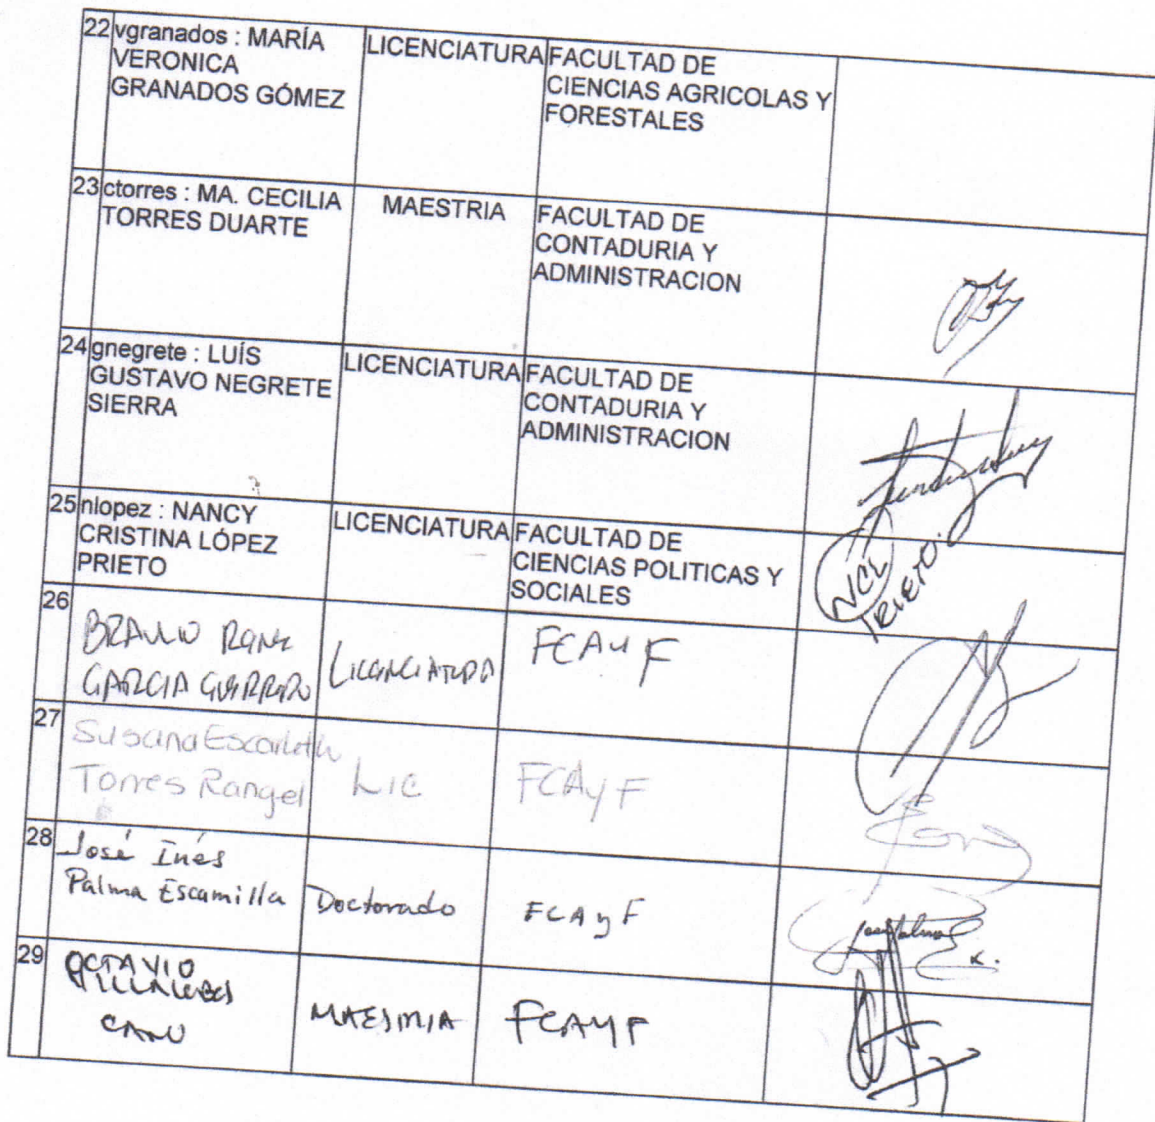 22 vgranados : MARÍA VERONICA GRANADOS GÓMEZ LICENCIATURA FACULTAD DE CIENCIAS AGRICOLAS Y FORESTALES
23 ctorres : MA. CECILIA TORRES DUARTE MAESTRIA FACULTAD DE CONTADURIA Y ADMINISTRACION
24 gnegrete : LUÍS GUSTAVO NEGRETE SIERRA LICENCIATURA FACULTAD DE CONTADURIA Y ADMINISTRACION
25 nlopez : NANCY CRISTINA LÓPEZ PRIETO LICENCIATURA FACULTAD DE CIENCIAS POLITICAS Y SOCIALES NCL
26 BRAULIO GARCIA GUERRERO LICENCIATURA FCAyF
27 Susana Escarleth Torres Rangel Lic FCAyF
28 José Inés Palma Escamilla Doctorado FCAyF
29 OCTAVIO VILLALOBOS CANO MAESTRIA FCAYF